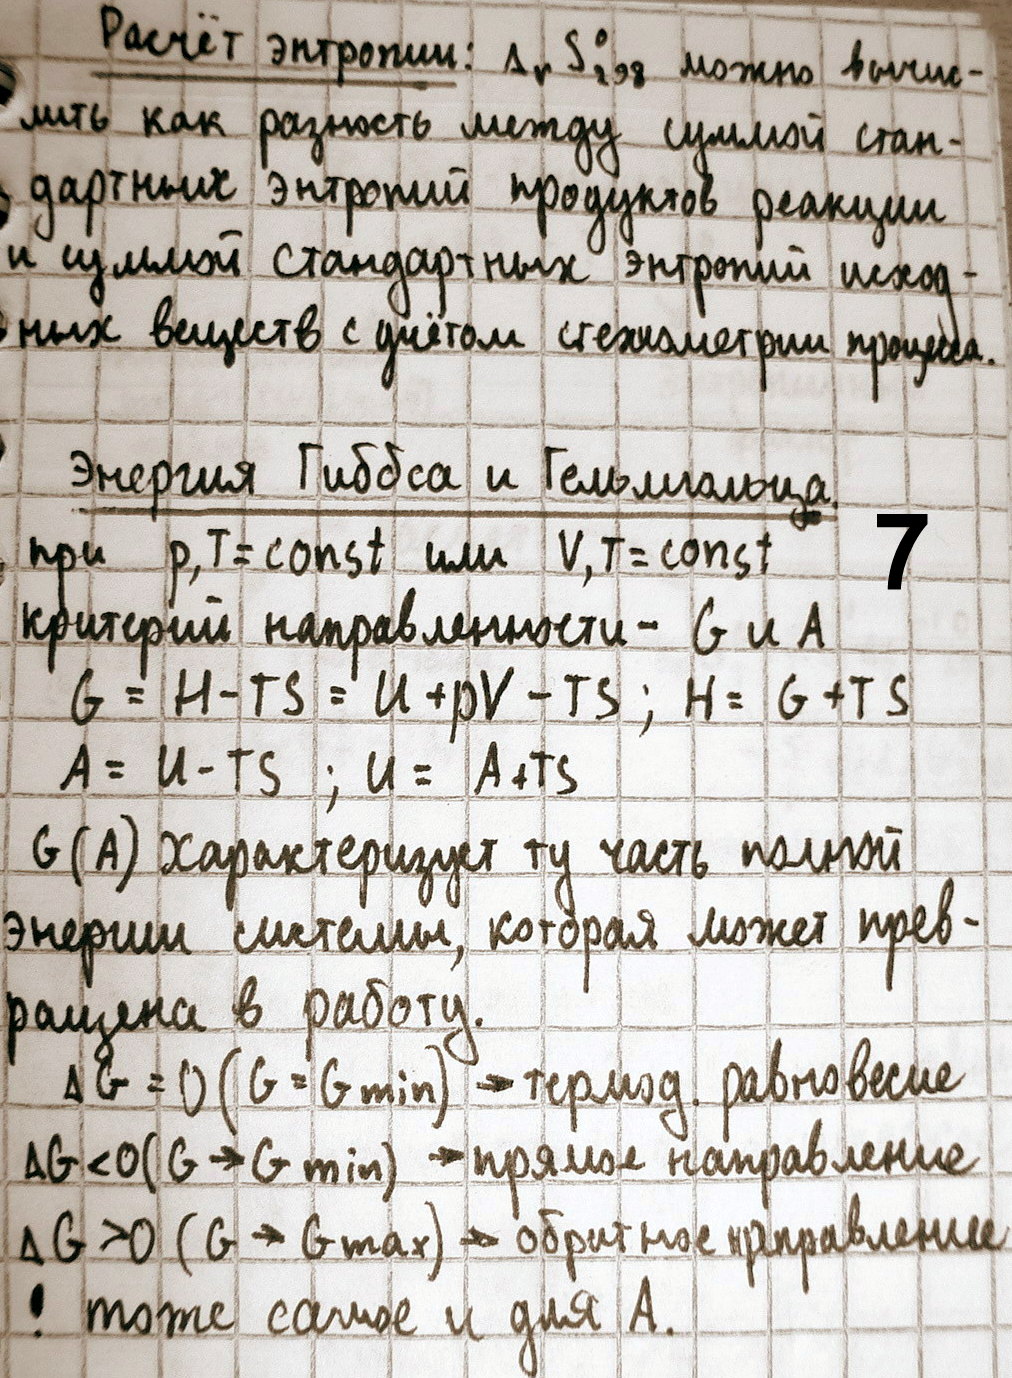 Расчёт энтропии: Δr S°298 можно вычис-
лить как разность между суммой стан-
дартных энтропий продуктов реакции
и суммой стандартных энтропий исход-
ных веществ с учётом стехиометрии процесса.
Энергия Гиббса и Гельмгольца.
при p,T=const или V,T=const
7
критерий направленности - G и A
G = H-TS = U+pV-TS; H= G+TS
A= U-TS ; U= A+TS
G(A) характеризует ту часть полной
энергии системы, которая может прев-
ращена в работу.
ΔG=0(G=Gmin) → термод. равновесие
ΔG<0(G→Gmin) → прямое направление
ΔG>0(G→Gmax) → обратное направление
! тоже самое и для A.